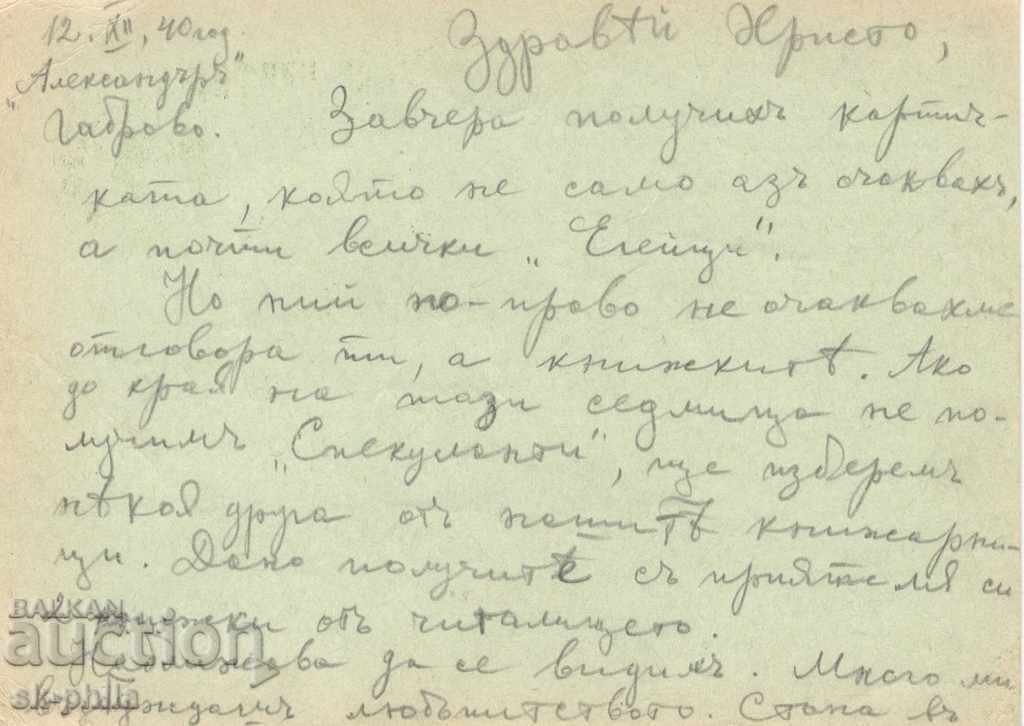 12. XII, 40 год.
"Александъръ"
Габрово.
Здравѣй Христо,
Завчера получихъ картич-
ката, която не само азъ очаквахъ,
а почти всички „Егейци".
Но ний по-право не очаквахме
отговора ти, а книжкитѣ. Ако
до края на тази седмица не по-
лучимъ „Спекуланти", ще изберемъ
нѣкоя друга от нашитѣ книжарни-
ци. Дано получите съ приятеля си
книжки отъ читалището.
да се видимъ. Много ми
любопитството. Стана въ
BALKAN
auction
sk-phila